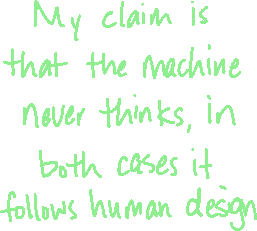 My claim is
that the machine
never thinks, in
both cases it
follows human design